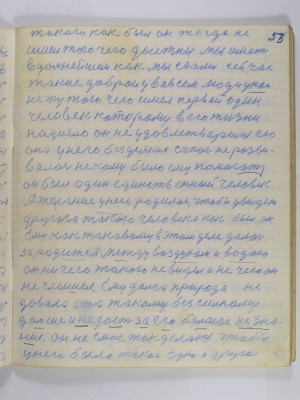 53
такого как был он тогда не
имел того чего должны мы иметь
в дальнейшем как мы с вами сейчас
такие добром у во всем людям
нету того чего имел первой один
человек которому в его жизни
надоело он не удовлетварялся его
она у него без целия не разви
валось некому было ему помогать
он был один единственный человек
А желание у него родилось, чтобы увидеть
другого такого человека как был он
Ему как таковому в этом деле далось
зародится между воздухом и водою
он ничего такого не видел и не чего он
не слышел. Ему далося природа не
довала ему такому бессильному
дальше и не даст за его больное не зна-
ние, он не смог так сделать чтобы
у него было такое одно и другое